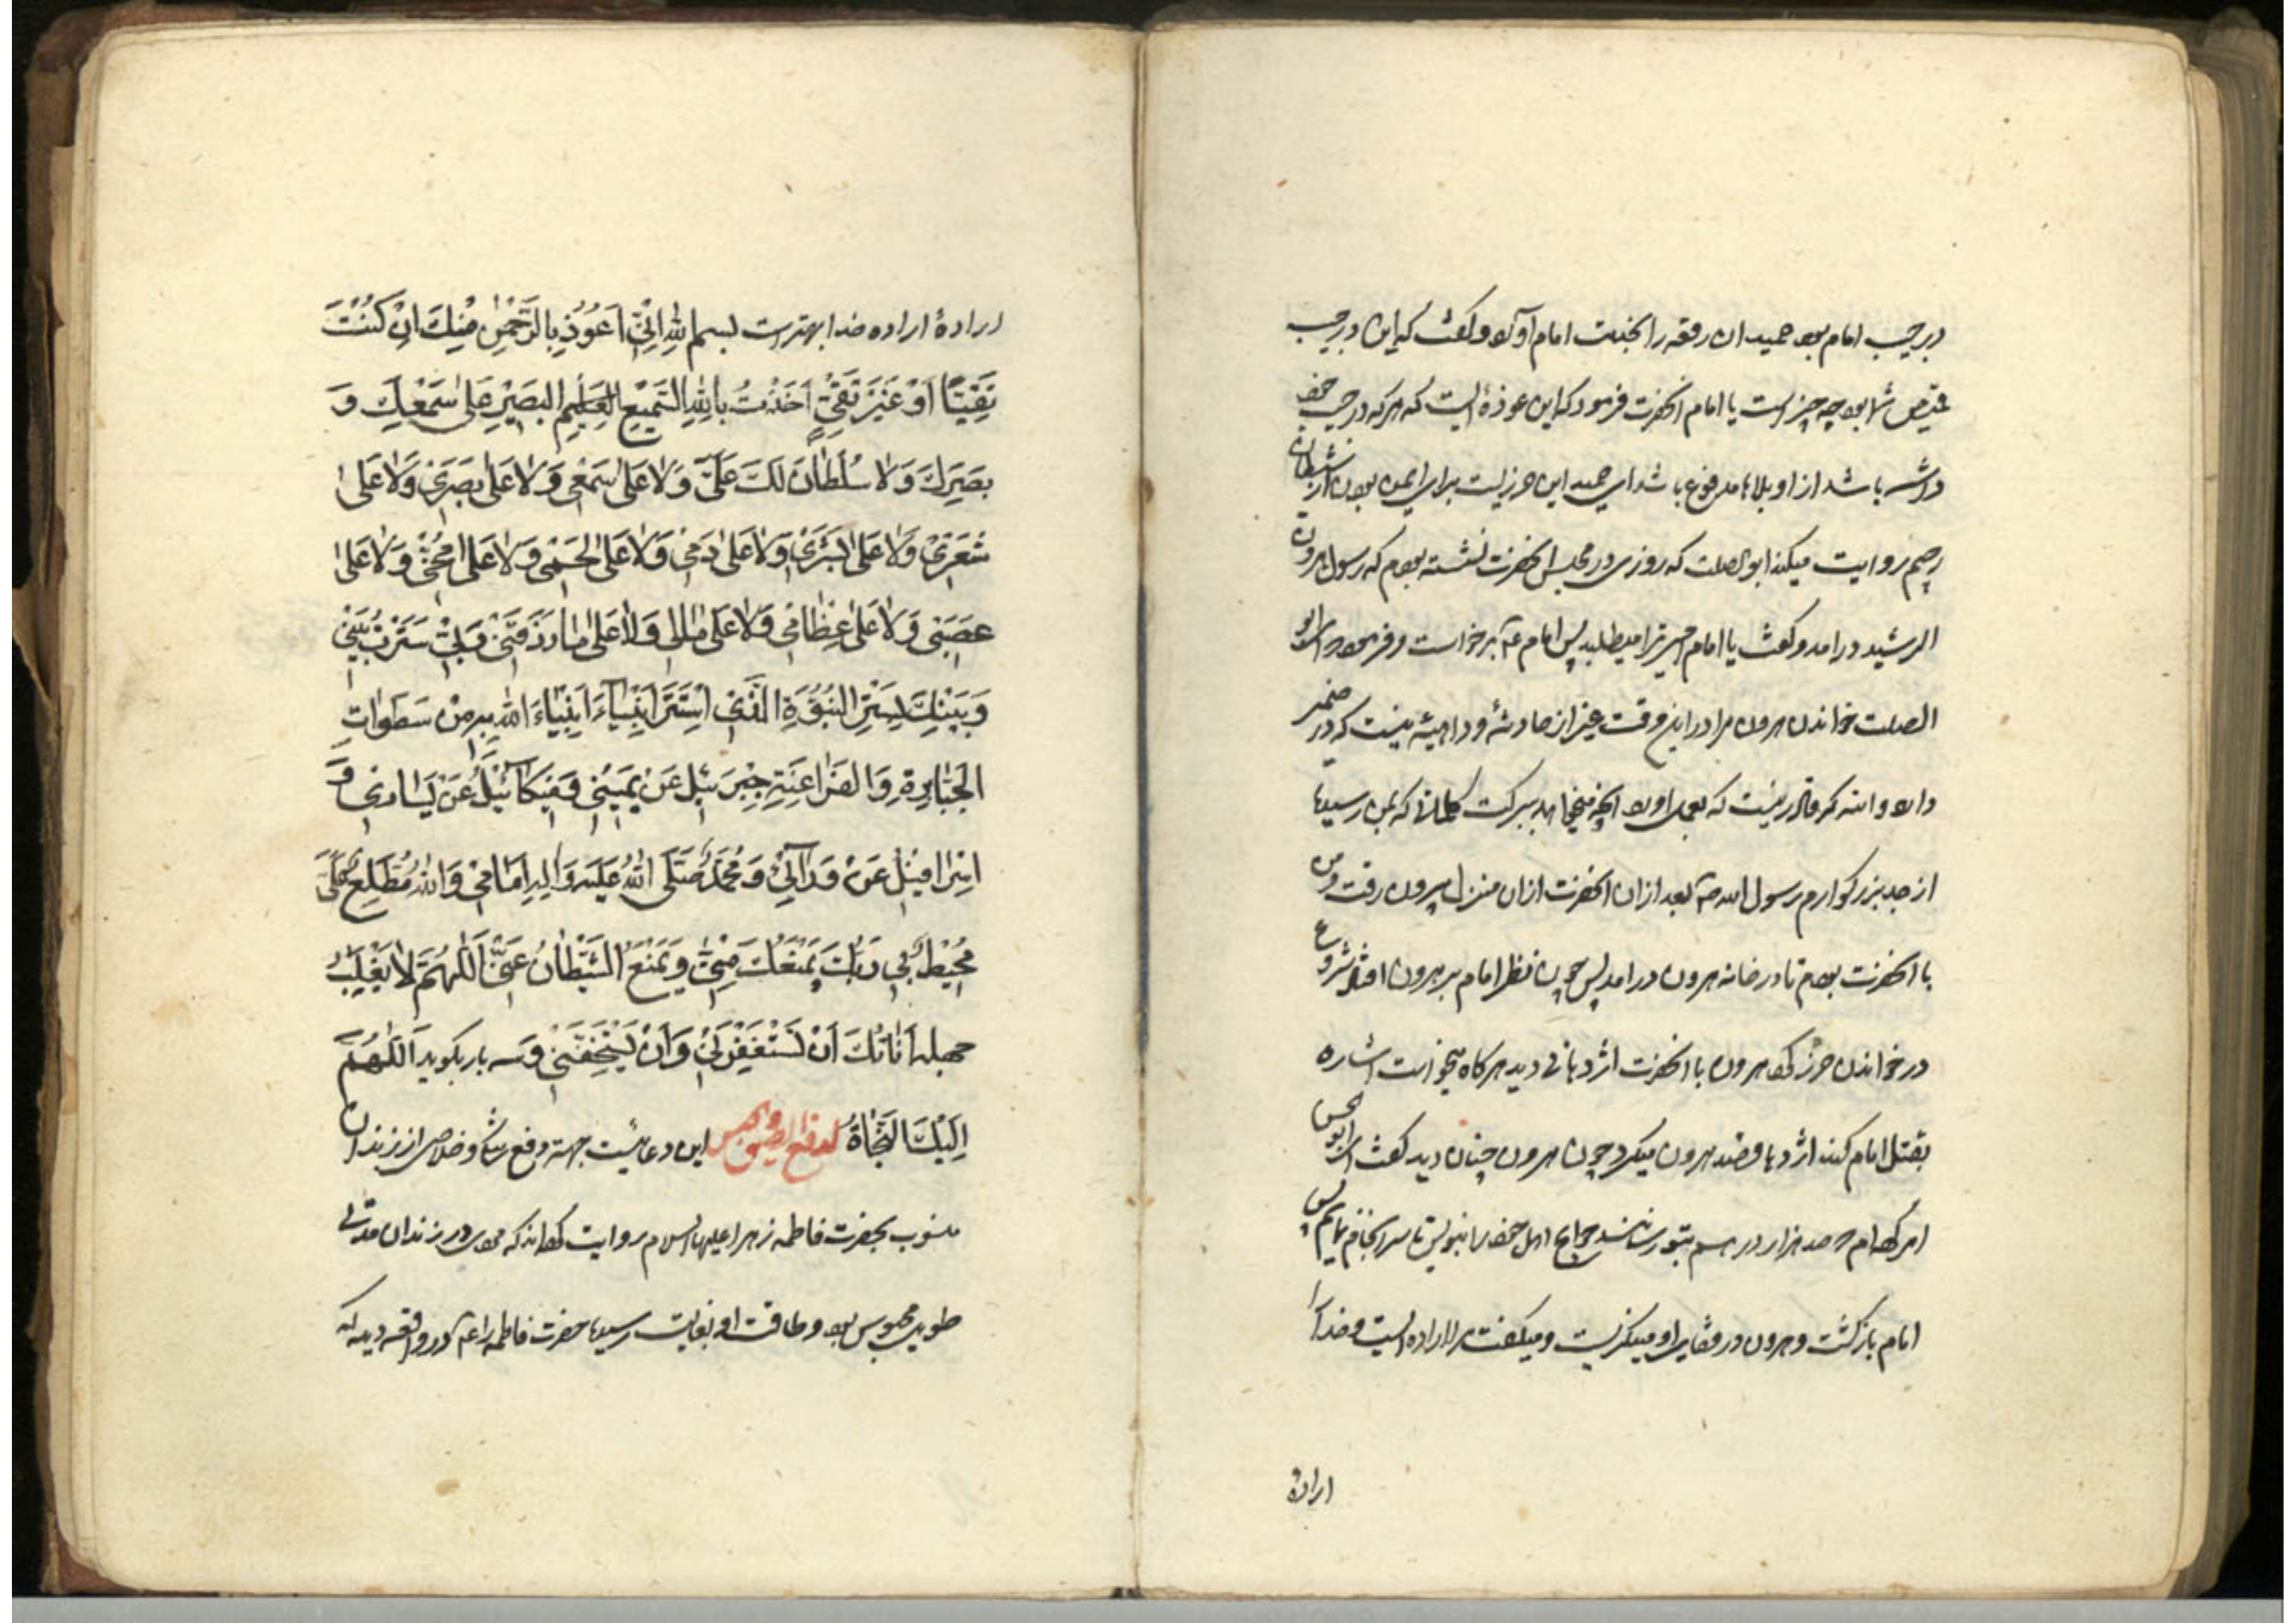 در جیب امام بود حمید ان رقعه را بخدمت امام آورد و گفت که این در جیب
قمیص شما بود چه چیز است یا امام انحضرت فرمود که این عوذهٔ ایست که هر که در جیب خود
داشته باشد از او بلاها مدفوع باشد ای حمید این حرزیست برای ایمن بودن از شیطان
رجیم روایت میکند ابو الصلت که روزی در مجلس انحضرت نشسته بودم که رسول هرون
الرشید در امد و گفت یا امام امیر ترا میطلبد پس امام برخواست و فرمود ای ابو
الصلت خواندن هرون مرا در این وقت غیر از حادثهٔ و داهیهٔ نیست که در ضمیر
دارد والله که قادر نیست که بعمل اورد انچه میخواهد ببرکت کلماتی که بمن رسیده
از جد بزرگوارم رسول الله بعد از ان انحضرت از ان منزل بیرون رفت و من
با انحضرت بودم تا در خانه هرون در امد پس چون نظر امام بر هرون افتاد شروع
در خواندن حرز کرد هرون با انحضرت اژدهائی دید هرگاه میخواست اشاره
بقتل امام کند اژدها قصد هرون میکرد چون هرون چنان دید گفت ای ابو الحسن
امر کرده‌ام صد هزار درهم بتو رسانند حوایج اهل خود را بنویس تا سرانجام نمایم پس
امام بازگشت و هرون در قفای او مینگریست و میگفت مرا اراده ایست و خدا را
ارادهٔ
ارادهٔ اراده خدا بهتر است بسم الله اِنّی اَعُوذُ بِالرَّحْمنِ مِنْکَ اِنْ کُنْتَ
تَقِیّاً اَوْ غَیْرَ تَقِیٍّ اَخَذْتُ بِاللهِ السَّمیعِ العَلیمِ البَصیرِ عَلیٰ سَمْعِکَ وَ
بَصَرِکَ وَلا سُلْطانَ لَکَ عَلَیَّ وَلا عَلیٰ سَمْعی وَلا عَلیٰ بَصَری وَلا عَلیٰ
شَعْری وَلا عَلیٰ بَشَری وَلا عَلیٰ دَمی وَلا عَلیٰ لَحْمی وَلا عَلیٰ مُخّی وَلا عَلیٰ
عَصَبی وَلا عَلیٰ عِظامی وَلا عَلیٰ مالی وَلا عَلیٰ ما رَزَقَنی رَبّی سَتَرْتُ بَیْنی
وَ بَیْنَکَ بِسِتْرِ النُّبُوَّةِ الَّذی اسْتَتَرَ اَنْبِیاءَ اَنْبِیاءَ اللهِ بِهِ مِنْ سَطَواتِ
الجَبابِرَةِ وَ الفَراعِنَةِ جِبْرَئیلُ عَنْ یَمینی وَ میکائیلُ عَنْ یَساری وَ
اِسْرافیلُ عَنْ وَرائی وَ مُحَمَّدٌ صَلَّی اللهُ عَلَیْهِ وَ آلِهِ اَمامی وَ اللهُ مُطَّلِعٌ عَلَیَّ
مُحیطٌ بی یَمْنَعُکَ مِنّی وَ یَمْنَعُ الشَّیْطانَ عَنّی اَللّهُمَّ لا یَغْلِبُ
جهله اَناتَکَ اَنْ یَسْتَفِزَّنی وَ اَنْ یَسْتَخِفَّنی و سه بار بگوید اَللّهُمَّ
اِلَیْکَ النَّجاةُ لدفع الضیق و الحبس این دعائیست بجهته دفع و خلاصی از زندان
منسوب بحضرت فاطمه زهرا علیها السلام روایت کرده‌اند که مردی در زندان مدتی
طویل محبوس بود و طاقت او بغایت رسیده حضرت فاطمه را در واقعه دید که